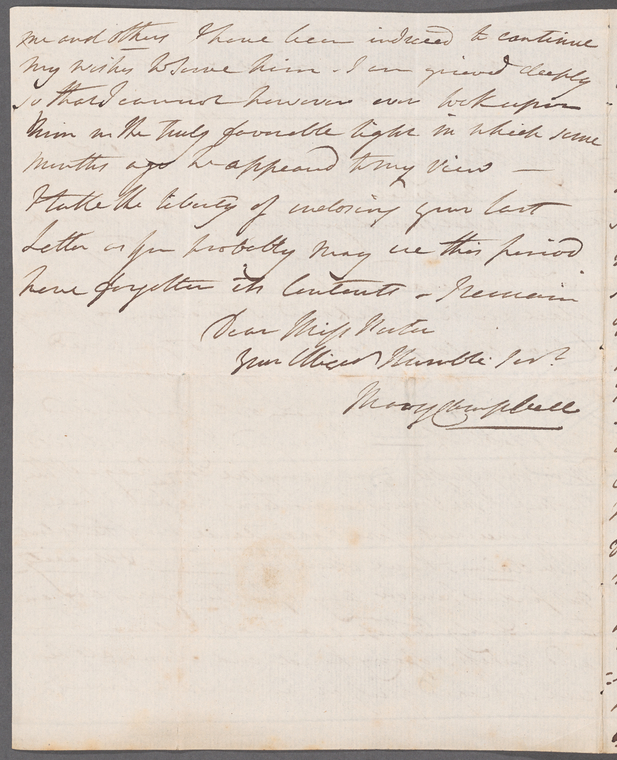 me and others I have been induced to continue
my wishes to serve him. I am grieved deeply
so that I cannot however ever look upon
him in the truly favorable light in which some
months ago he appeared to my view —
I take the liberty of inclosing your last
Letter as you probably may at this period
have forgotten its Contents - I remain
Dear Miss Porter
Your Obliged Humble Servt
Mary Campbell